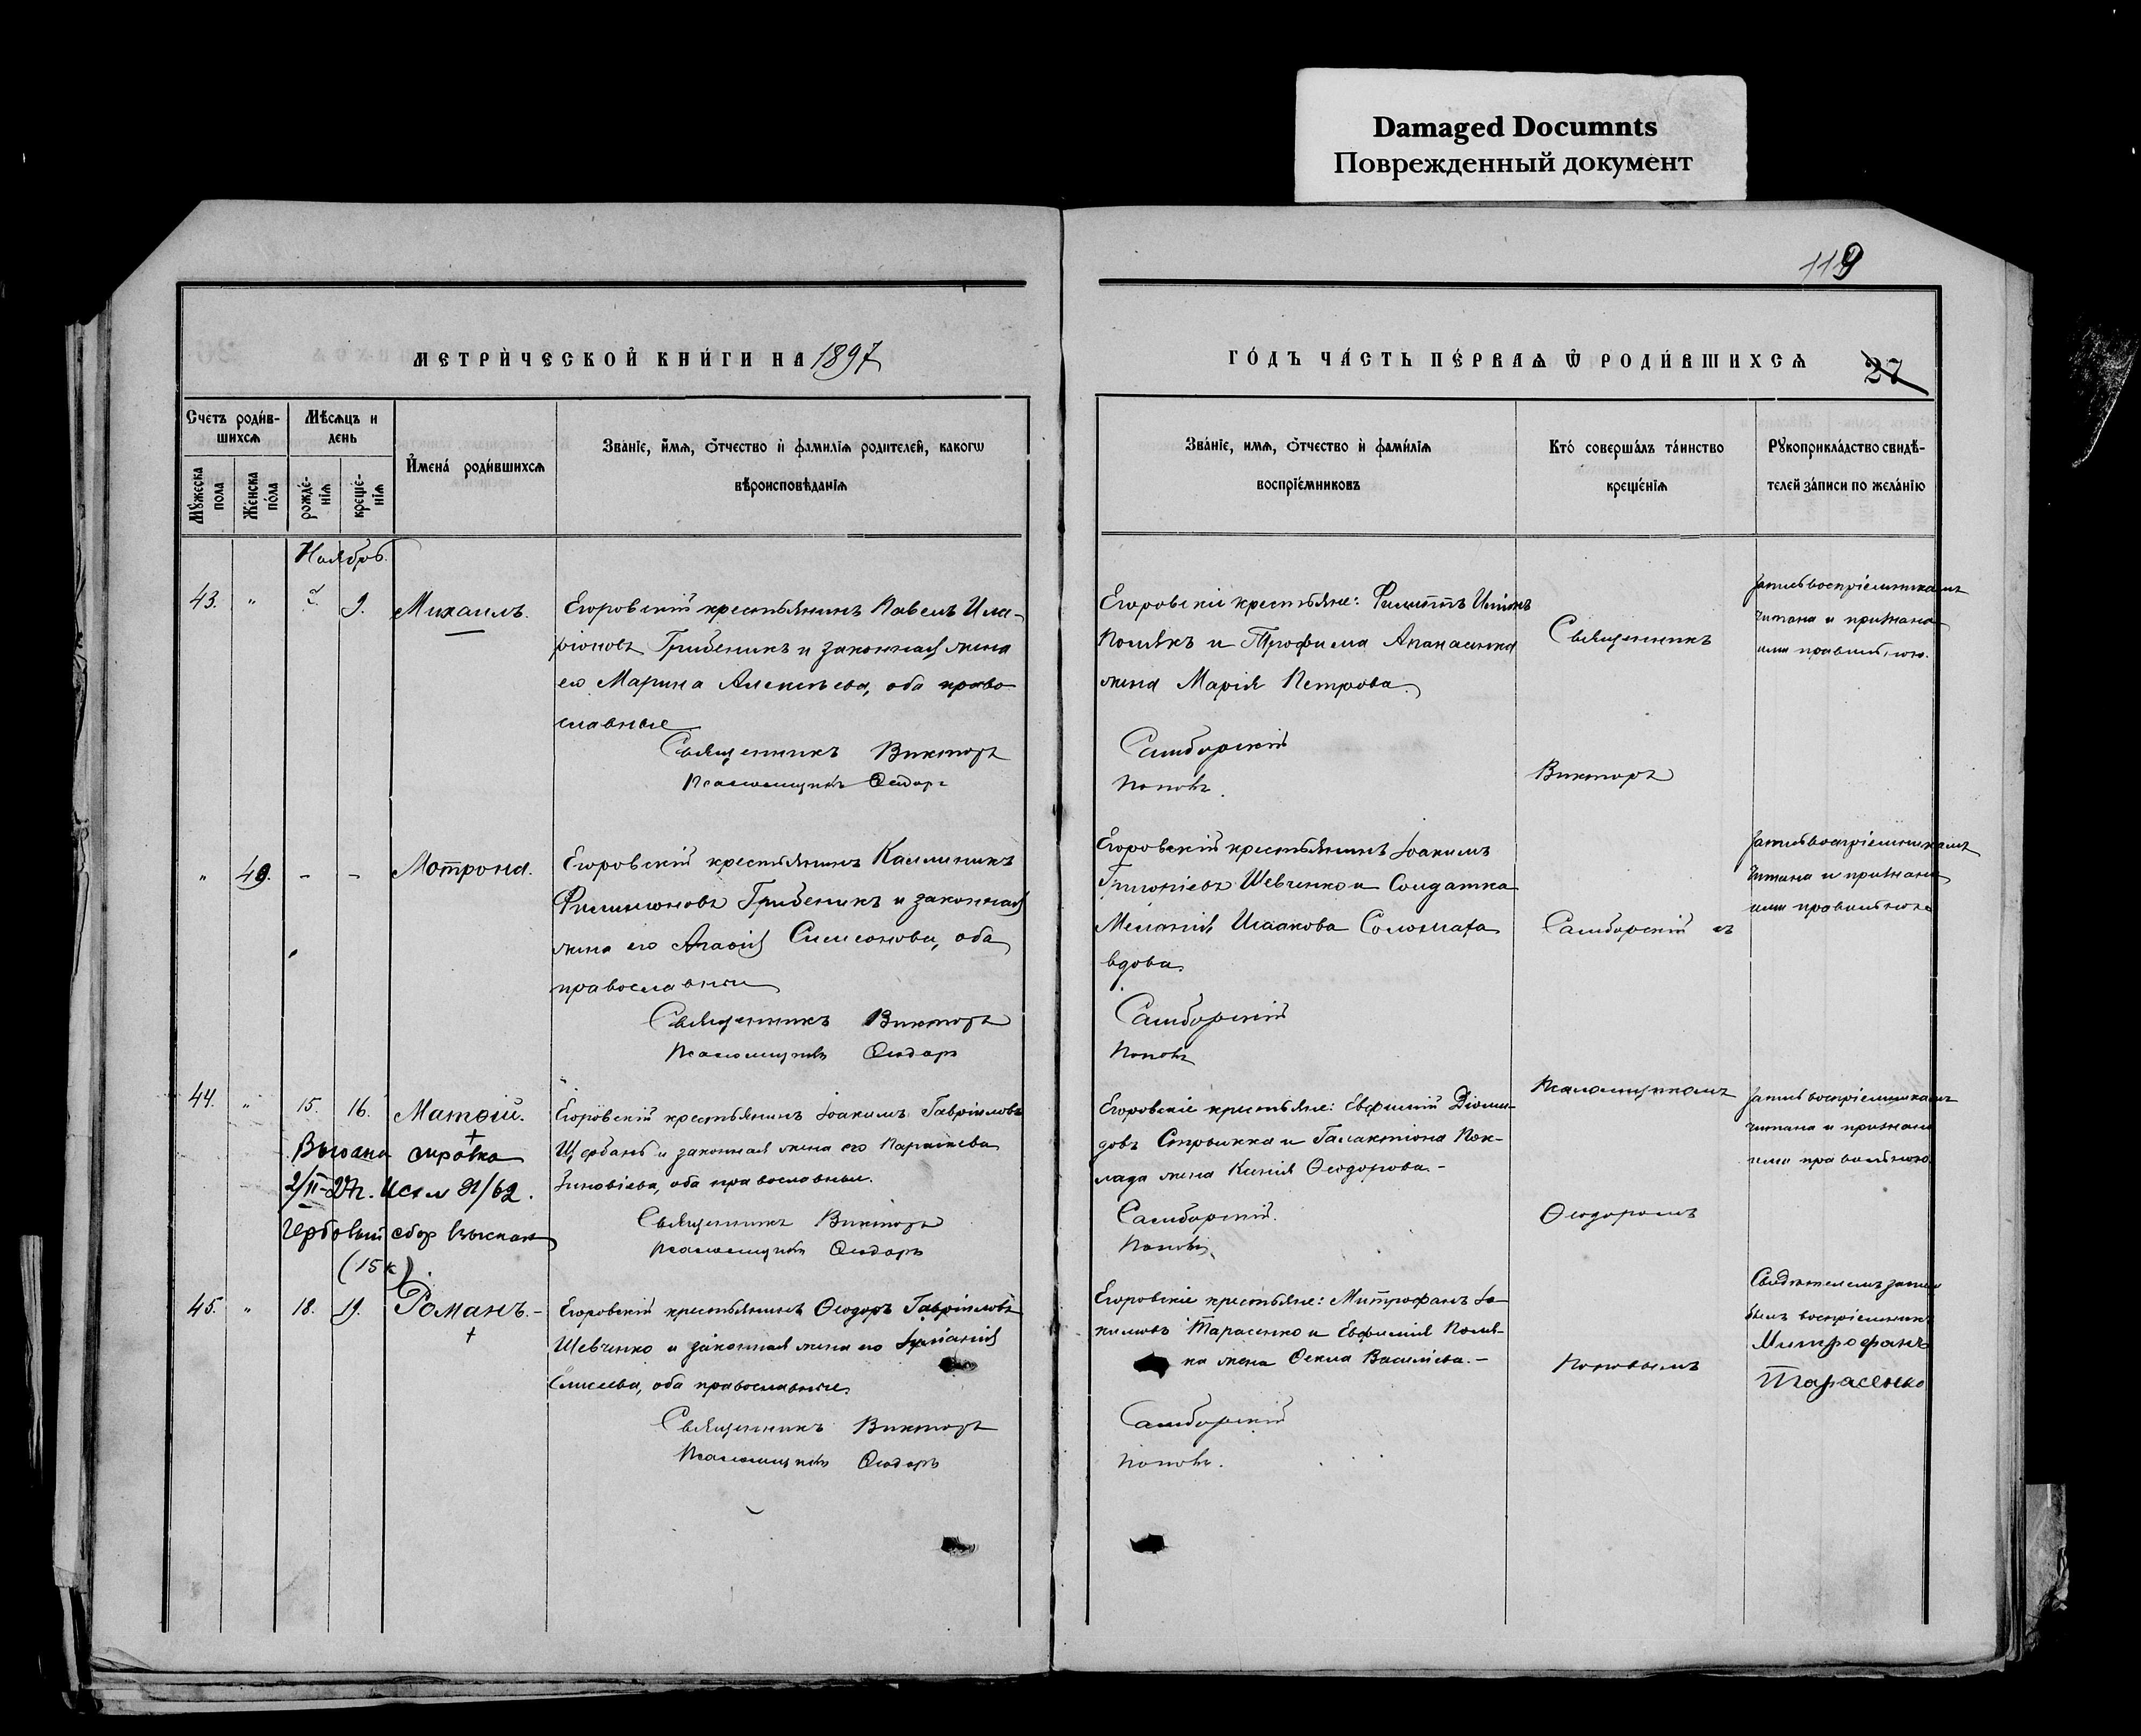 Damaged Documnts
Поврежденный документ
119
МЕТРИЧЕСКОЙ КНИГИ НА 1897
ГОДЪ ЧАСТЬ ПЕРВАѦ Ѿ РОДИВШИХСѦ
27
Счетъ родив-
шихсѧ
Мѣсѧцъ и
день
Мꙋжеска пола
Женска пола
рожде-
нїѧ
креще-
нїѧ
Имена родившихсѧ
Званїе, имѧ, ѻтчество и фамилїѧ родителей, какогѡ
вѣроисповѣданїѧ
Званїе, имѧ, ѻтчество и фамилїѧ
воспрїемниковъ
Кто совершалъ таинство
крещенїѧ
Рꙋкоприкладство свидѣ-
телей записи по желанїю
Ноябрь.
43. " 9. Михаилъ.
Егоровскій крестьянинъ Павелъ Ила-
ріоновъ Гребеникъ и законная жена
его Марина Алексѣева, оба право
славные
Священникъ Викторъ
Псаломщикъ Ѳеодоръ
Егоровскіе крестьяне: Филиппъ
Полякъ и Трофима Апанасенка
жена Марія Петрова.
Самборскій
Поповъ.
Священникъ
Викторъ
Запись воспріемникамъ
читана и признана
ими правильною.
" 49. - - Мотрона.
Егоровскій крестьянинъ Каллиникъ
Филимоновъ Гребеникъ и законная
жена его Агаѳія Симеонова, оба
православные
Священникъ Викторъ
Псаломщикъ Ѳеодоръ
Егоровскій крестьянинъ Іоакимъ
Григоріевъ Шевченко и Солдатка
Меланія Исаакова Соломаха
вдова.
Самборскій
Поповъ
Самборскій съ
Запись воспріемникамъ
читана и признана
ими правильною
44. " 15. 16. Матѳій.
Выдана справка
2/II-27г. Исх № 21/62.
Гербовый сбор взыскан
(15 к).
Егоровскій крестьянинъ Іоакимъ Гавріиловъ
Щербань и законная жена его Параскева
Зиновіева, оба православные.
Священникъ Викторъ
Псаломщикъ Ѳеодоръ
Егоровскіе крестьяне: Евфимій Діоми-
довъ Стрыжка и Галактіона Пок-
лада жена Ксенія Ѳеодорова.-
Самборскій.
Поповъ.
Псаломщикомъ
Ѳеодоромъ
Запись воспріемникамъ
читана и признана
ими правильною.
45. " 18. 19. Романъ.-
Егоровскій крестьянинъ Ѳеодоръ Гавріиловъ
Шевченко и законная жена его
Елисеева, оба православные
Священникъ Викторъ
Псаломщикъ Ѳеодоръ
Егоровскіе крестьяне: Митрофанъ Іо-
кимовъ Тарасенко и Евфимія Поля-
ка жена Ѳекла Василіева.-
Самборскій
Поповъ.
Поповымъ
Свидѣтелемъ записи
былъ воспріемникъ
Митрофанъ
Тарасенко